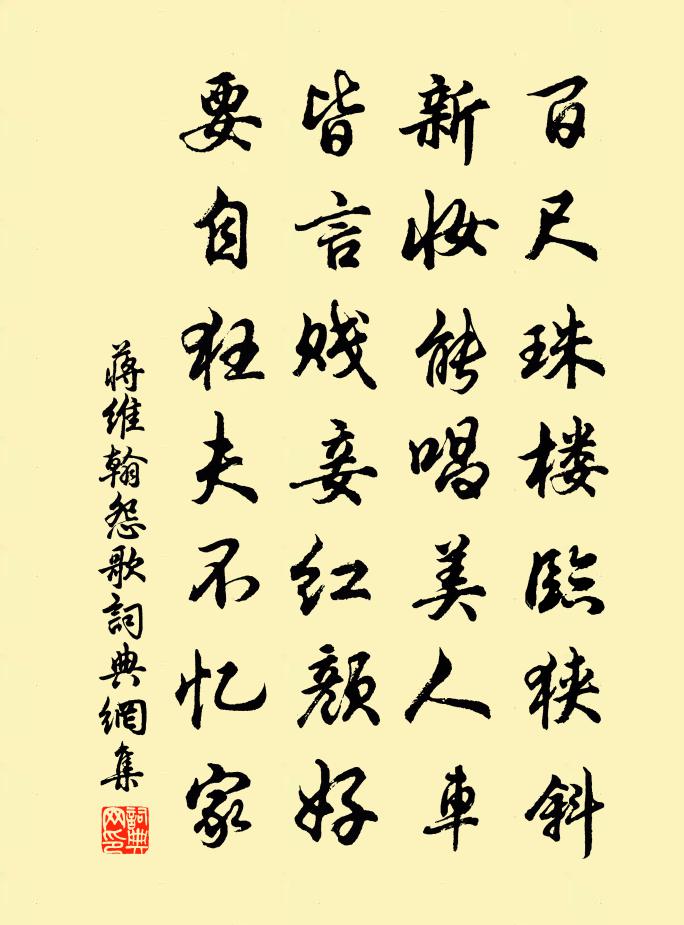 百尺珠楼臨狭斜
新妆能唱美人車
皆言贱妾红颜好
要自狂夫不忆家
蒋維翰怨歌詞典網集
詞典网印